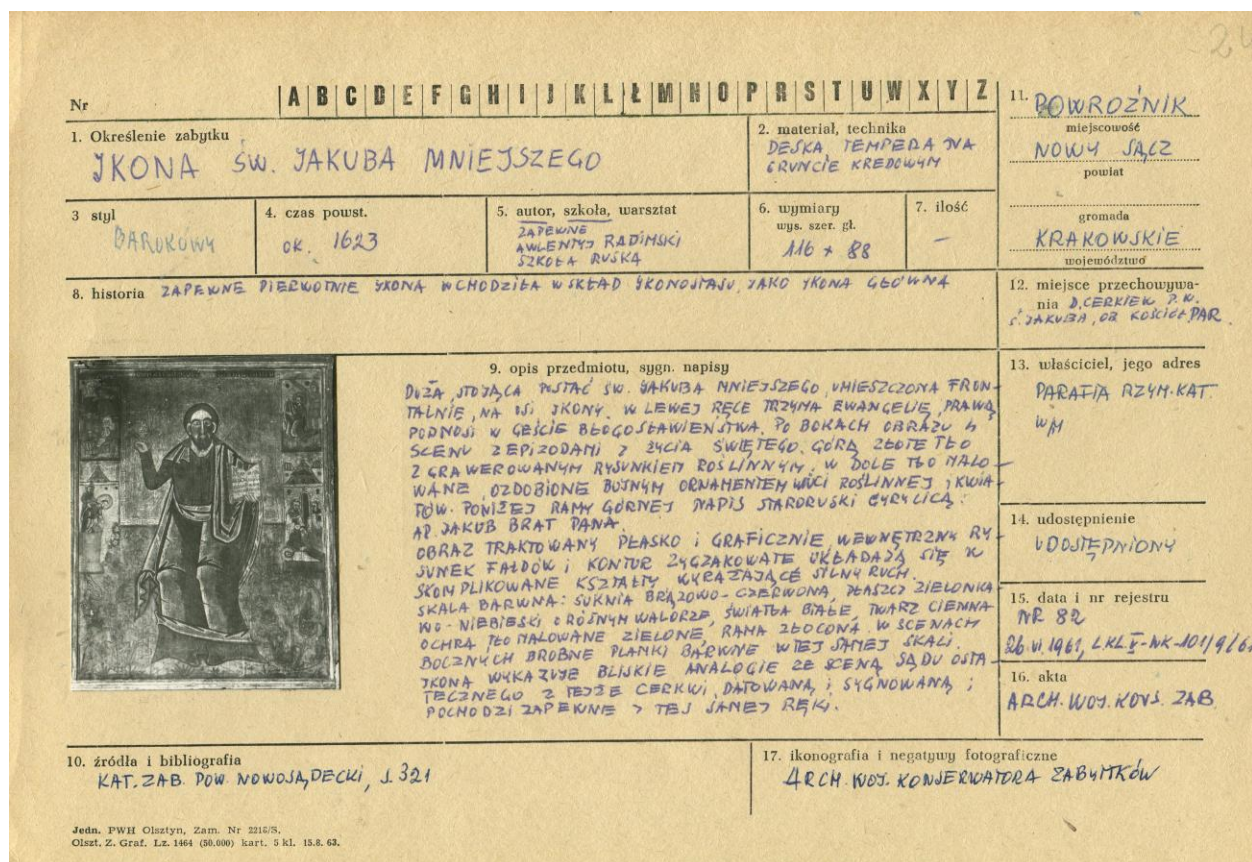 24
Nr
A B C D E F G H I J K L Ł M N O P R S T U W X Y Z
1. Określenie zabytku
IKONA ŚW. JAKUBA MNIEJSZEGO
2. materiał, technika
DESKA, TEMPERA NA
GRUNCIE KREDOWYM
3 styl
BAROKOWY
4. czas powst.
OK. 1623
5. autor, szkoła, warsztat
ZAPEWNE
AWLENTYJ RADIMSKI
SZKOŁA RUSKA
6. wymiary
wys. szer. gł.
116 + 88
7. ilość
–
8. historia ZAPEWNE PIERWOTNIE IKONA WCHODZIŁA W SKŁAD IKONOSTASU, JAKO IKONA GŁÓWNA
9. opis przedmiotu, sygn. napisy
DUŻA, STOJĄCA POSTAĆ ŚW. JAKUBA MNIEJSZEGO, UMIESZCZONA FRON-
TALNIE, NA OSI IKONY. W LEWEJ RĘCE TRZYMA EWANGELIĘ, PRAWĄ
PODNOSI W GEŚCIE BŁOGOSŁAWIEŃSTWA. PO BOKACH OBRAZU 4
SCENY Z EPIZODAMI Z ŻYCIA ŚWIĘTEGO. GÓRĄ ZŁOTE TŁO
Z GRAWEROWANYM RYSUNKIEM ROŚLINNYM, W DOLE TŁO MALO-
WANE, OZDOBIONE BUJNYM ORNAMENTEM WICI ROŚLINNEJ I KWIA-
TÓW. PONIŻEJ RAMY GÓRNEJ NAPIS STARORUSKI CYRYLICĄ:
AP. JAKUB BRAT PANA.
OBRAZ TRAKTOWANY PŁASKO I GRAFICZNIE, WEWNĘTRZNY RY-
SUNEK FAŁDÓW I KONTUR ZYGZAKOWATE UKŁADAJĄ SIĘ W
SKOMPLIKOWANE KSZTAŁTY WYRAŻAJĄCE SILNY RUCH.
SKALA BARWNA: SUKNIA BRĄZOWO-CZERWONA, PŁASZCZ ZIELONKA-
WO-NIEBIESKI O RÓŻNYM WALORZE, ŚWIATŁA BIAŁE, TWARZ CIEMNA
OCHRA, TŁO MALOWANE ZIELONE, RAMA ZŁOCONA. W SCENACH
BOCZNYCH DROBNE PLAMKI BARWNE W TEJ SAMEJ SKALI.
IKONA WYKAZUJE BLISKIE ANALOGIE ZE SCENĄ SĄDU OSTA-
TECZNEGO Z TEJŻE CERKWI, DATOWANĄ I SYGNOWANĄ;
POCHODZI ZAPEWNE Z TEJ SAMEJ RĘKI.
10. źródła i bibliografia
KAT. ZAB. POW. NOWOSĄDECKI, s. 321
11. POWROŹNIK
miejscowość
NOWY SĄCZ
powiat
gromada
KRAKOWSKIE
województwo
12. miejsce przechowywa-
nia D. CERKIEW P.W.
Ś. JAKUBA, OB. KOŚCIÓŁ PAR.
13. właściciel, jego adres
PARAFIA RZYM-KAT.
W/M
14. udostępnienie
UDOSTĘPNIONY
15. data i nr rejestru
NR 82
26.VI.1961, L.KL V-NK-101/9/61
16. akta
ARCH. WOJ. KONS. ZAB.
17. ikonografia i negatywy fotograficzne
ARCH. WOJ. KONSERWATORA ZABYTKÓW
Jedn. PWH Olsztyn, Zam. Nr 2216/S.
Olszt. Z. Graf. Lz. 1464 (50.000) kart. 5 kl. 15.8. 63.